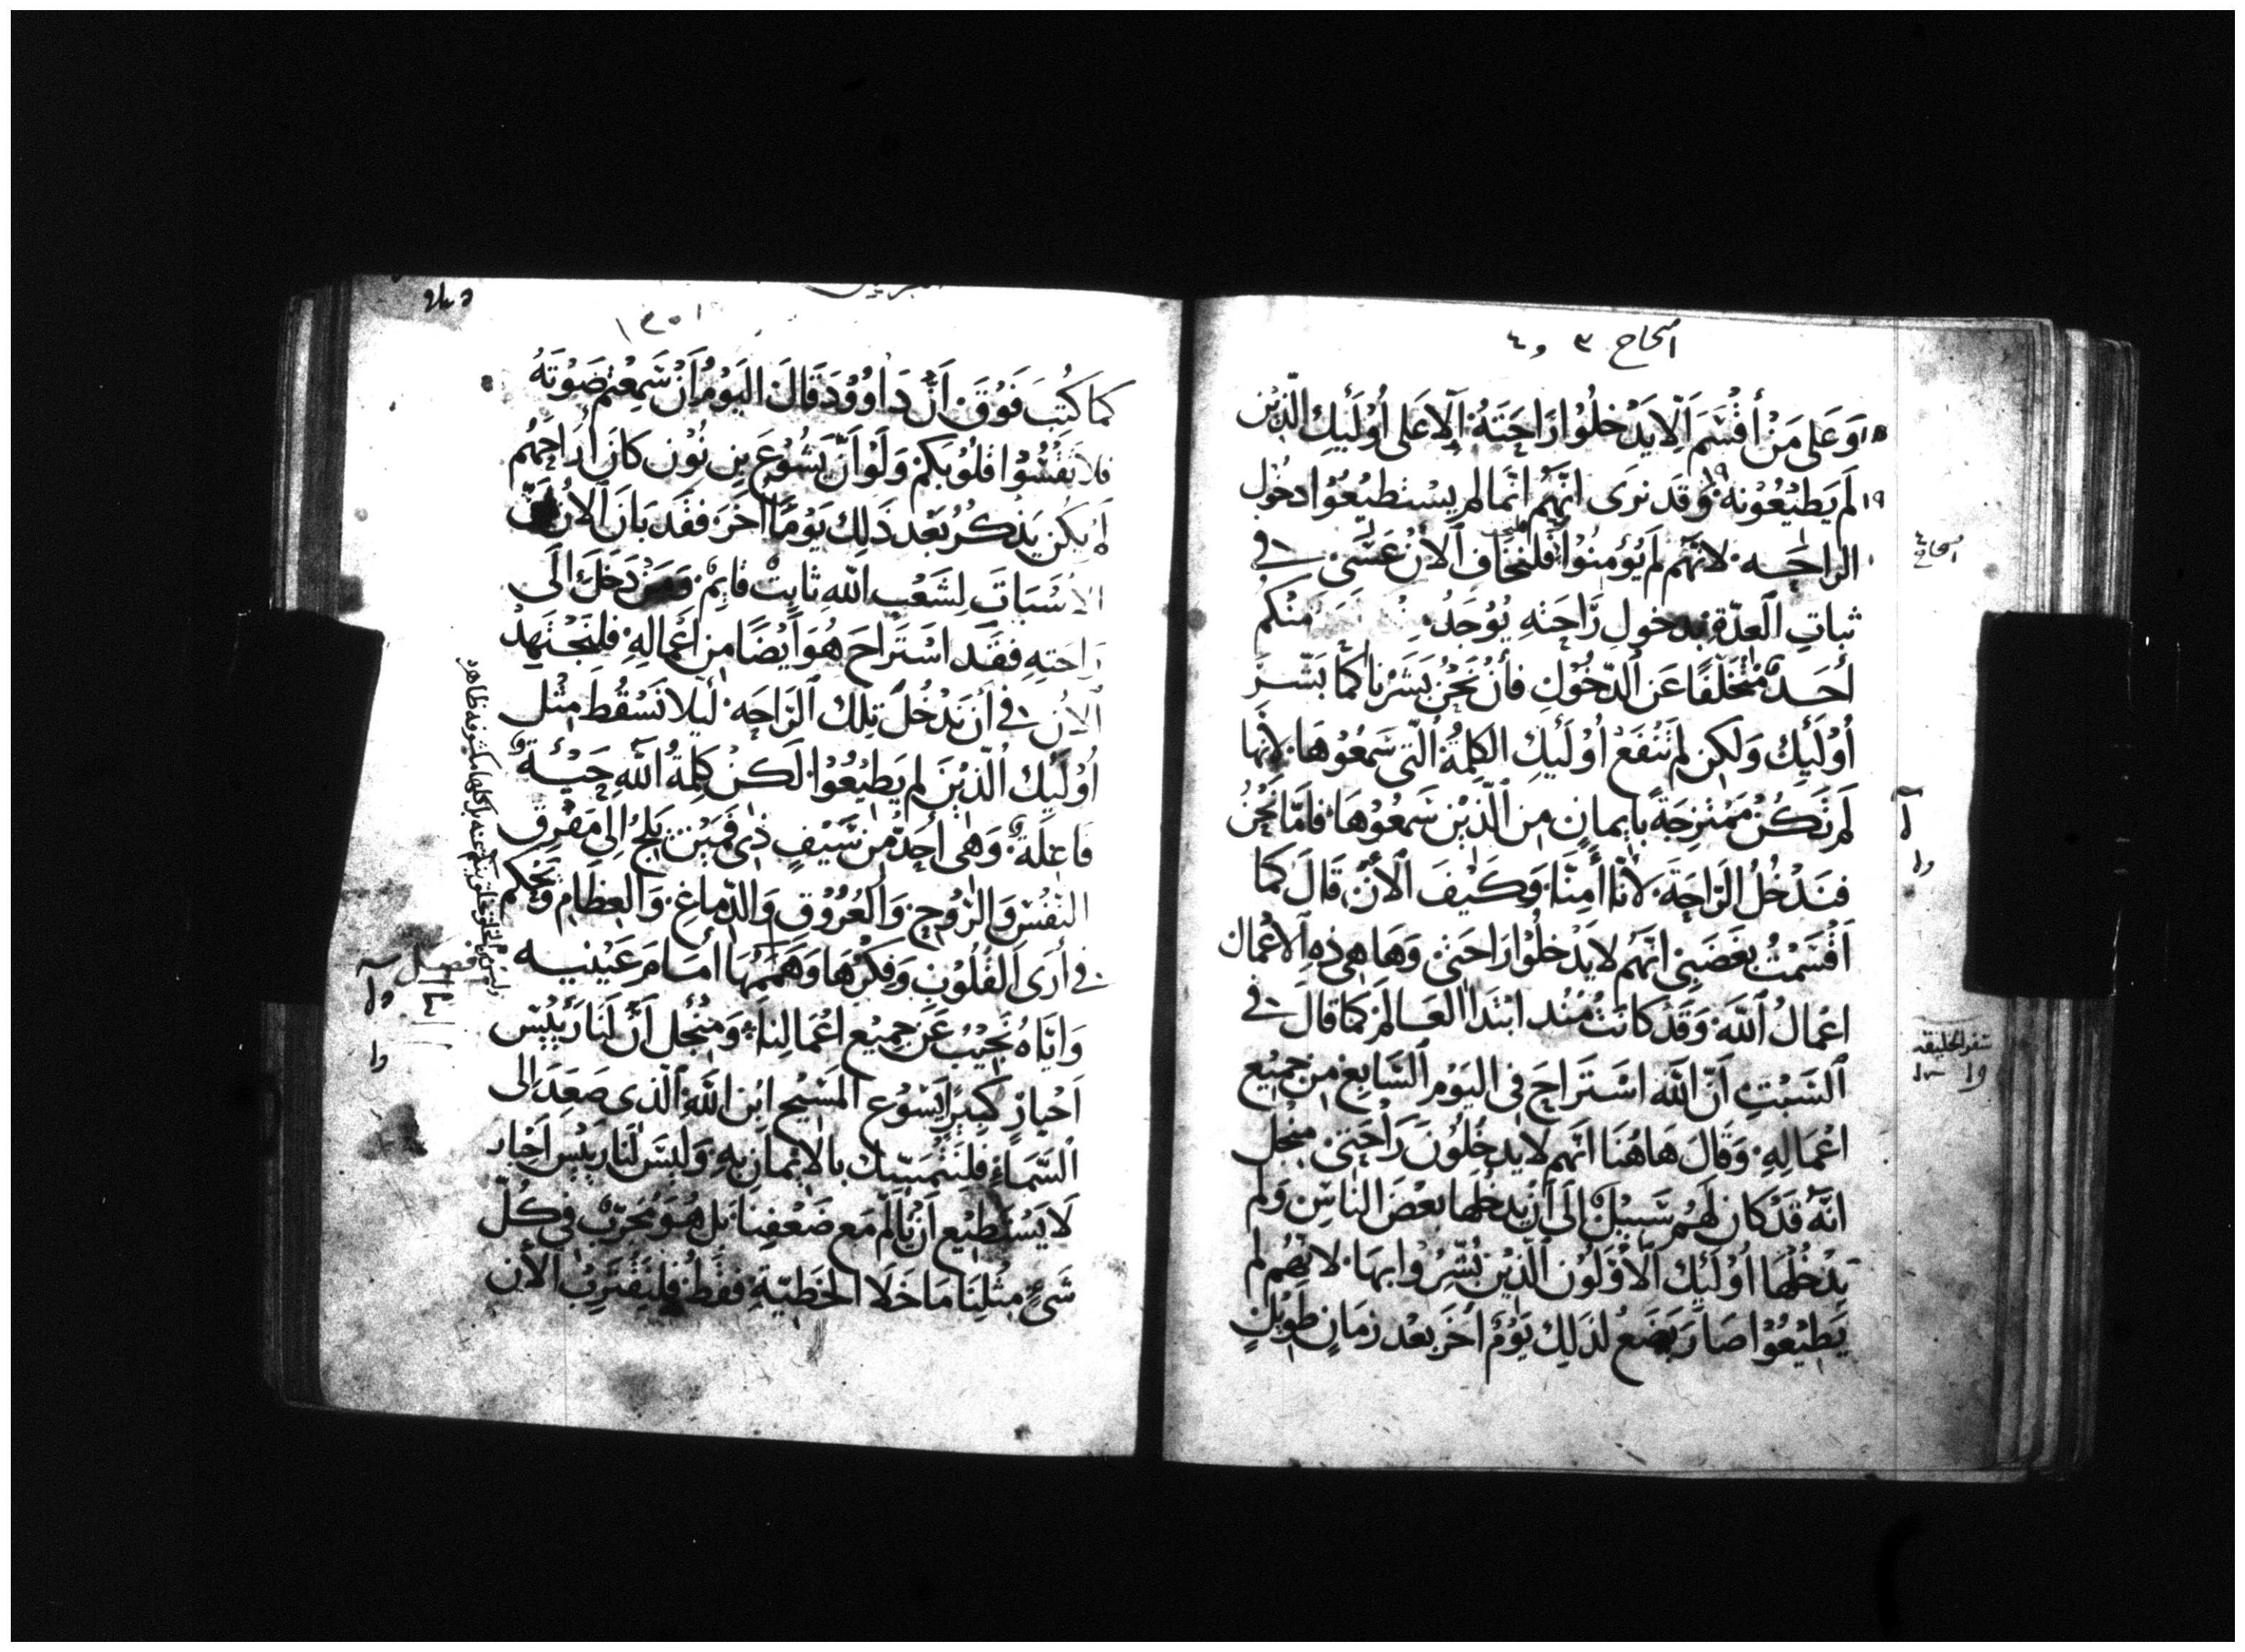 اصحاح ٣ و ٤
١٨ وَعَلى مَنْ أَقْسَمَ أَلّا يَدْخُلُوا رَاحَتَهُ أَلّا عَلى أُوْلَئِكَ الَّذِيْنَ
١٩ لَم يَطِيْعُوْنَهُ وَقَد نَرَى انَّهُم انّمَا لم يِسْتَطِيْعُوا دخُوْل
الراحَه لانّهُم لَم يُؤمِنُوا فَلْنَخَاف الْأنَ عَسَى في
ثباتِ العِدّة بدخولِ رَاحَتهِ يُوْجَدُ مِنْكُم
أحَدٌ مُتَخَلِّفًا عَن الدّخُوْلِ فأنْ نَحْنُ بَشّرْنَا كَمَا بَشّرَ
أُوْلَئِكَ وَلَكِن لَم تَنْفَعْ أُوْلَئِكَ الكَلِمَةُ الّتي سَمِعُوْهَا لأنّها
لَم تَكُنْ مُمْتَزِجَةً بإيمانٍ مِن الّذِيْنَ سَمِعُوْهَا فَامّا نَحْنُ
فنَدْخُلُ الرّاحَةَ لأنّا أمِنّا وَكَيْفَ الْأنَ قَالَ كَمَا
أَقْسَمْتُ بغَضَبِي انّهُم لا يَدْخُلُوا رَاحَتي وَهَا هِي ذه الأعْمَال
اعْمالُ اللّه وَقَدْ كانَتْ مُنْذ ابْتدَا العَالم كمَا قالَ في
السّبْتِ أنّ اللّه اسْتَرَاحَ في اليَوْمِ السّابِع مِن جَمِيْع
اعْمَالِهِ وَقَالَ هَاهُنَا انّهُم لا يدخُلُونَ رَاحَتي مِنْجل
انّهُ قَدْ كان لَهُم سَبِيْلٌ الَى أنْ يدخُلْهَا بعْضَ النّاس وَلم
يَدْخُلْهَا اُوْلَئِكَ الأوّلُونَ الّذِيْنَ بُشِّرُوا بهَا لانّهُم لم
يَطِيْعُوْا صَارَ يَضَعُ لذَلِكَ يَوْم أخَرَ بعْد زمَانٍ طَوِيْلٍ
اصحاح ٤
سفر الخليقه
كمَا كُتِبَ فَوْقَ انّ دَاوُوْدَ قَالَ اليَوْمُ أنْ سَمِعْتُم صَوْتَهُ
فلا تَقْسُوْا قلُوْبَكُم وَلَوْ انّ يَشُوْعَ بِن نُوْن كَانَ أرَاحَهُم
لَم يكُن يَذكُرُ بعْدَ ذَلِكَ يَوْمًا أخَرَ فقَد بَانَ الأنَ
الأسْبَات لِشَعْبِ اللّه ثابِتْ قائِمْ وَمَن دَخَلَ الَى
رَاحَتِهِ فقَد اسْتَرَاحَ هُوَ أيْضًا مِن اعْمَالِهِ فلنَجْتَهِدْ
الأنَ في أنْ نَدْخُلَ تِلكَ الرّاحَه لَيلا نَسْقُط مِثْل
أُوْلَئِكَ الّذِيْنَ لم يَطِيْعُوْا لَكِنْ كَلِمَةُ اللّه حَيّةٌ
فَاعِلَةٌ وَهِى أحَدُّ مِنْ سَيْفٍ ذى فَمَيْنِ يَلِجُ الى مَفْرِق
النّفْسِ وَالرّوْحِ وَالعُرُوْقِ وَالدّمَاغِ وَالعِظَامِ وَتَحْكم
في أرَى القُلُوْبِ وَفكْرَهَا وَهَمَمهَا أمَامَ عَيْنيه
وَايّاهُ نُجِيْبُ عَن جَمِيْع اعْمَالِنَا وَمِنْجِل أنّ لَنَا رَئِيْس
اَحْبَارٍ كَبِيْرٍ اِيَسُوْعَ المَسِيْح ابْن اللّه الّذى صَعَدَ الى
السّمَاءِ فلنَتَمَسّكْ بالايْمَان بِهِ وَلَيْسَ لنَا رَئِيْس احْبَار
لَا يَسْتَطِيْع أنْ يَألَم مَع ضَعْفِنَا بَل هُوَ مُجَرّبٌ في كُلِّ
شَيءٍ مِثْلنَا مَا خَلَا الخَطِيّةِ فَقَطْ فَلنَقْتَرِبُ الأن
فصل